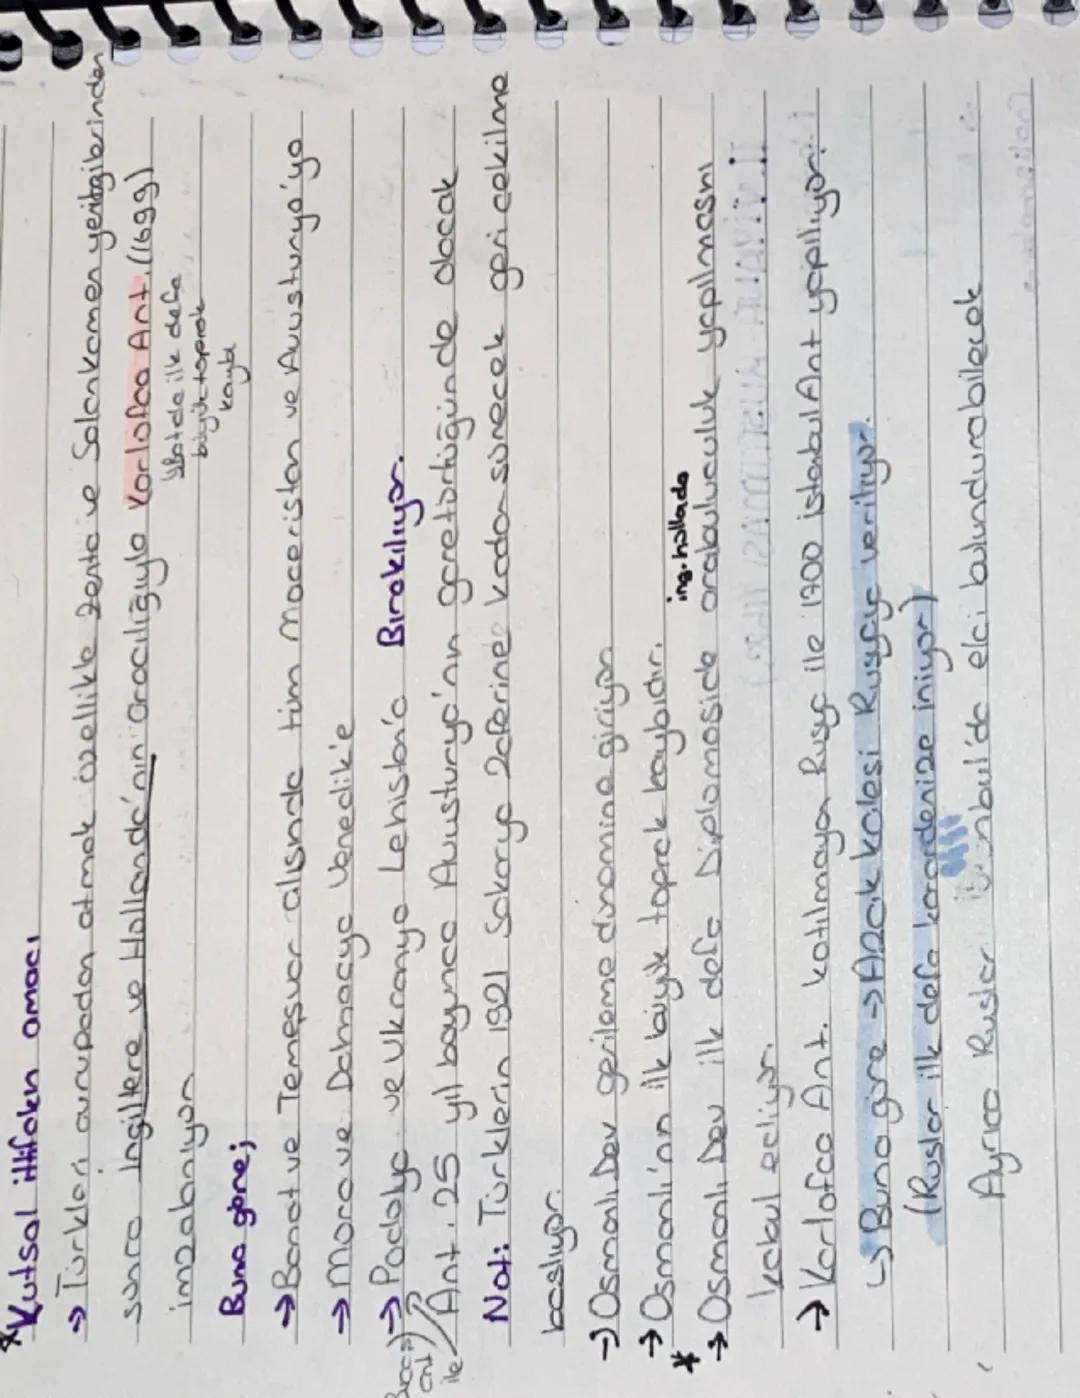 *Kutsal ittifakın amacı
→ Türkleri avrupadan atmak özellikle Zenta ve Salankamen yenilgilerinden
sonra İngiltere ve Hollanda'nın aracılığıyla Karlofça Ant. (1699)
Batıda ilk defa
büyük toprak
kaybı
imzalanıyor
Buna göre;
→ Banat ve Temeşvar dışında tüm Macaristan ve Avusturya'ya
→ Mora ve Dalmaçya Venedik'e
→ Podolya ve Ukranya Lehistan'a Bırakılıyor.
ile Ant. 25 yıl boyunca Avusturya'nın garetörlüğünde olacak
Not: Türklerin 1921 Sakarya Zaferine kadar sürecek geri çekilme
başlıyor.
→ Osmanlı Dev gerileme dönomine giriyor
→ Osmanlı'nın ilk büyük toprak kaybıdır.
ing. hollada
* → Osmanlı Dev ilk defa Diplomaside arabuluculuk yapılmasını
kabul ediyor.
→ Karlofça Ant. katılmayan Rusya ile 1700 istanbul Ant yapılıyor.
↳ Buna göre → Azak kalesi Rusya'ya veriliyor.
(Ruslar ilk defa karadenize iniyor)
Ayrıca Ruslar elçi bulundurabilecek